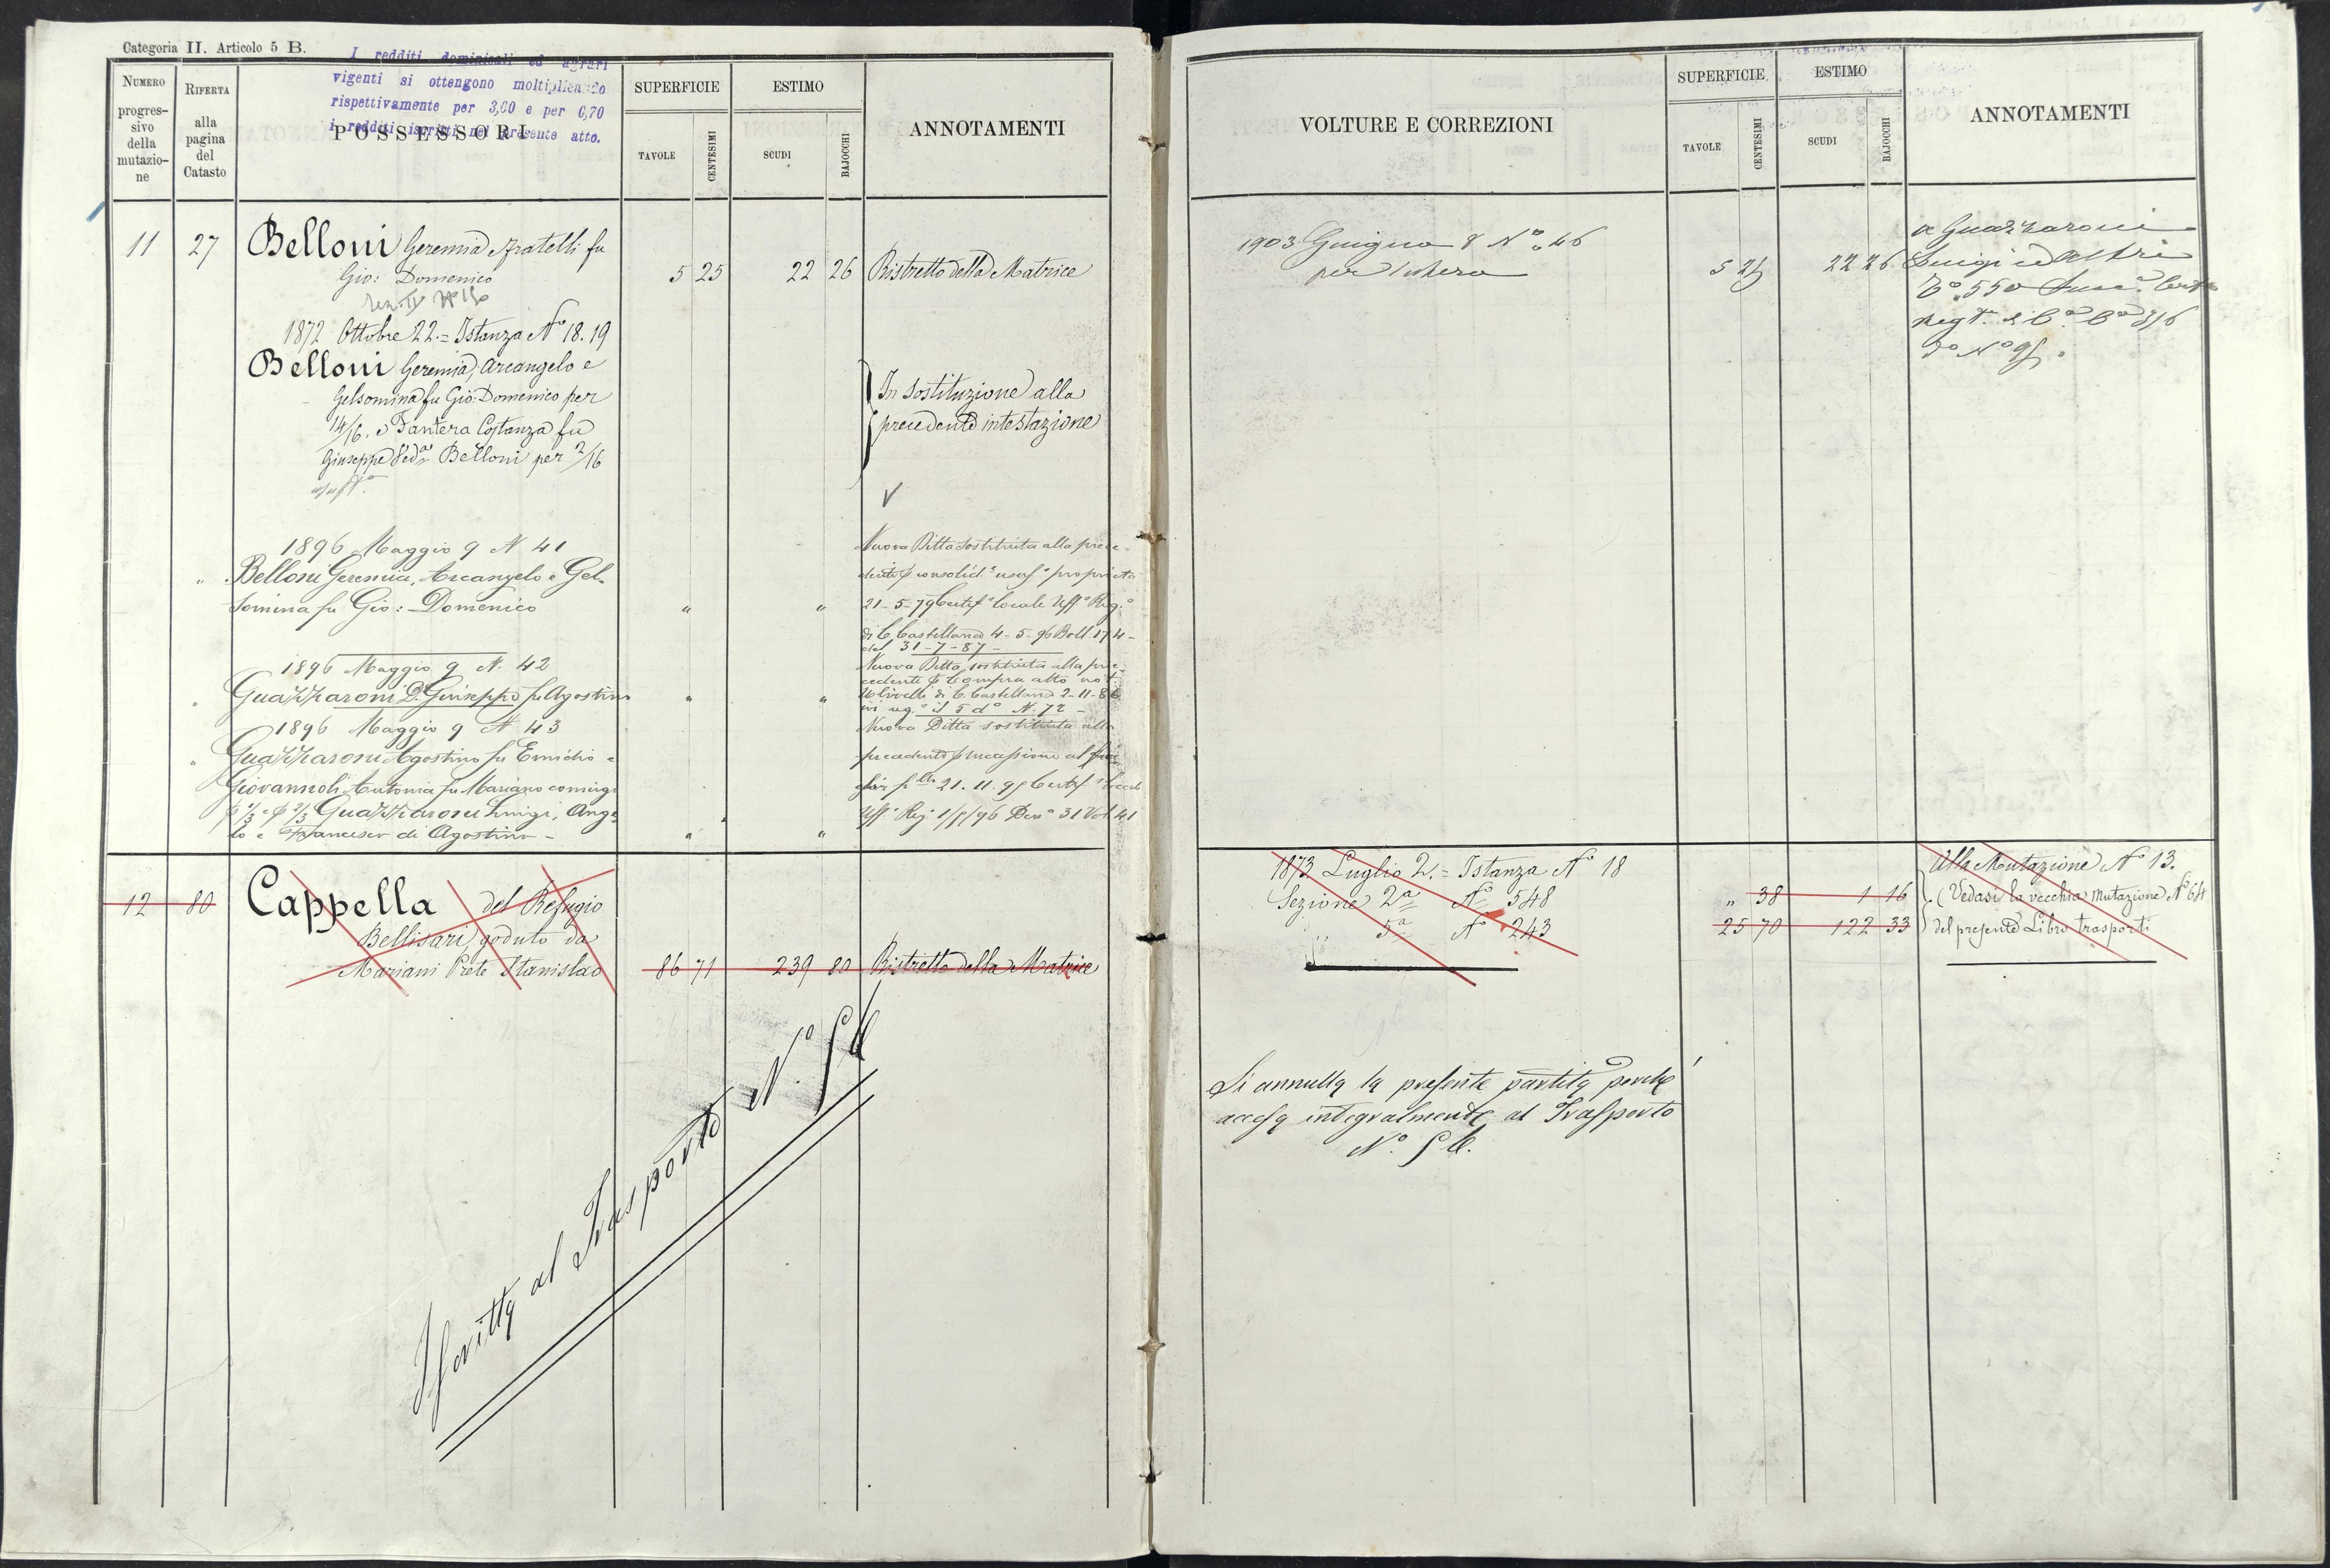 Categoria II. Articolo 5 B.
I redditi dominicali ed agrari
vigenti si ottengono moltiplicando
rispettivamente per 3,00 e per 0,70
i redditi iscritti nel presente atto.
NUMERO
progres-
sivo
della
mutazio-
ne
RIFERTA
alla
pagina
del
Catasto
POSSESSORI
SUPERFICIE
TAVOLE
CENTESIMI
ESTIMO
SCUDI
BAJOCCHI
ANNOTAMENTI
11 27 Belloni Geremia Fratelli fu
Gio: Domenico 5 25 22 26 Ristretto della Matrice
1872 Ottobre 22.= Istanza Nº 18.19
Belloni Geremia, Arcangelo e
Gelsomina fu Gio: Domenico per
14/16. e Tantera Costanza fu
Giuseppe Ved.ª Belloni per 2/16
usuft.ª
In sostituzione alla
precedente intestazione
1896 Maggio 9 N 41
„ Belloni Geremia, Arcangelo e Gel-
somina fu Gio: Domenico „ „
Nuova Ditta sostituita alla prece-
dente p consolid.e usuf.o proprietà
21-5-79 Certif.o locale Uff.o Reg.o
di C. Castellana 4-5-96 Boll. 174-
del 31-7-87-
1896 Maggio 9 N. 42
„ Guazzaroni D. Giuseppe fu Agostino „ „
Nuova Ditta sostituita alla pre-
cedente p Compra atto not.
di C. Castellana 2-11-86
ivi reg.o il 5 do N. 72-
1896 Maggio 9 N 43
„ Guazzaroni Agostino fu Emidio e
Giovannoli Antonia fu Mariano coniugi
p 1/3 e p 2/3 Guazzaroni Luigi, Ange
lo e Francesco di Agostino - „ „
Nuova Ditta sostituita alla
precedente p successione al
21.11.95 Certif.
Uff.o Reg. 1/5/96 Den.a 31 Vol. 41
12 80 Cappella del Refugio
Bellisari, goduto da
Mariani Prete Stanislao 86 71 239 80 Ristretto della Matrice
Iscritta al Trasporto N.o
VOLTURE E CORREZIONI
SUPERFICIE
TAVOLE
CENTESIMI
ESTIMO
SCUDI
BAJOCCHI
ANNOTAMENTI
1903 Giugno 8 No 46
per intero 5 25 22 26
a Guazzaroni
Luigi ed Altri
Tº 550
1873 Luglio 2.= Istanza Nº 18
Sezione 2ª Nº 548 „ 38 1 16
„ 5ª Nº 243 25 70 122 33
Alla Mutazione Nº 13.
(Vedasi la vecchia Mutazione Nº 64
del presente Libro Trasporti
Si annulla la presente partita perché
accesa integralmente al Trasporto
N.o